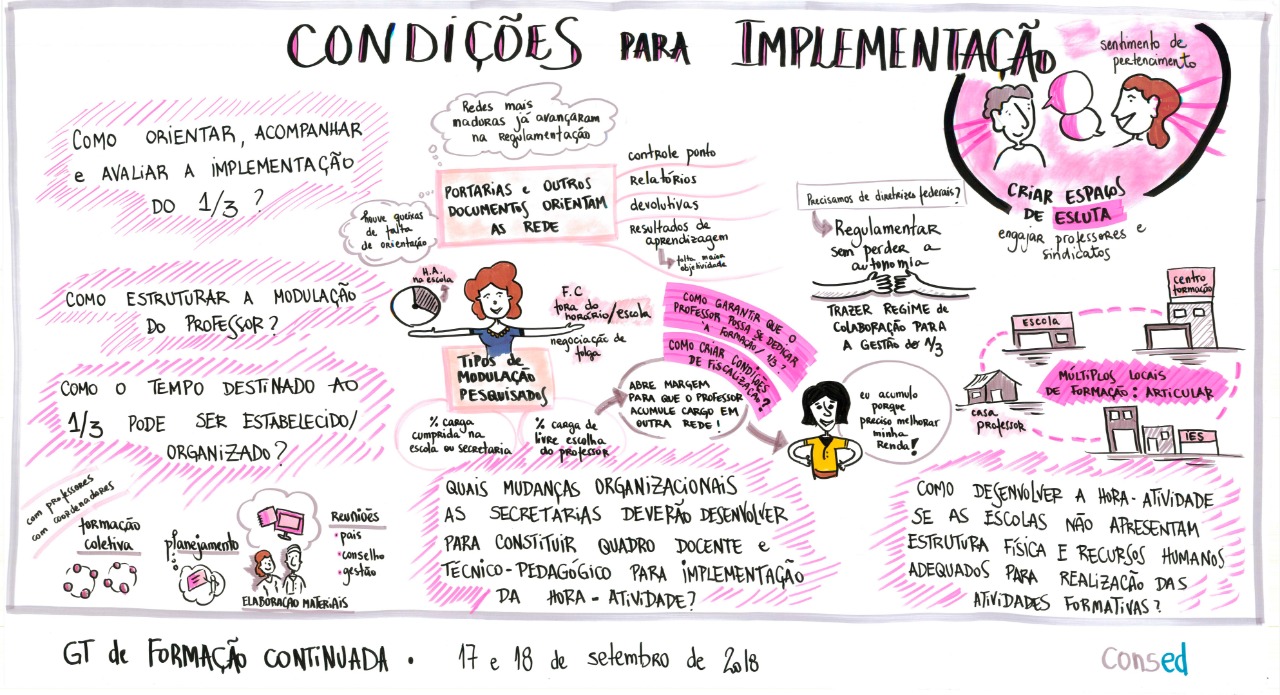 CONDIÇÕES PARA IMPLEMENTAÇÃO
sentimento de
pertencimento
CRIAR ESPAÇOS
DE ESCUTA
engajar professores e
sindicatos
COMO ORIENTAR, ACOMPANHAR
e AVALIAR A IMPLEMENTAÇÃO
DO 1/3 ?
Redes mais
maduras já avançaram
na regulamentação
PORTARIAS e OUTROS
DOCUMENTOS ORIENTAM
AS REDE
houve queixas
de falta
de orientação
controle ponto
RElatórios
devolutivas
resultados de
aprendizagem
falta maior
objetividade
Precisamos de diretrizes federais?
Regulamentar
sem perder a
autonomia
TRAZER REGIME de
COLABORAÇÃO PARA
A GESTÃO do 1/3
COMO ESTRUTURAR A MODULAÇÃO
DO PROFESSOR?
H.A.
na escola
F.C
fora do
horário/escola
negociação de
folga
TIPOS de
MODULAÇÃO
PESQUISADOS
% carga
cumprida na
escola ou secretaria
% carga de
livre escolha
do professor
COMO GARANTIR QUE O
PROFESSOR POSSA SE DEDICAR
A FORMAÇÃO/ 1/3 ?
COMO CRIAR CONDIÇÕES
DE FISCALIZAÇÃO?
ABRE MARGEM
PARA QUE O PROFESSOR
ACUMULE CARGO EM
OUTRA REDE!
eu acumulo
porque
preciso melhorar
minha
Renda!
centro
formação
Escola
MÚLTIPLOS LOCAIS
DE FORMAÇÃO: ARTICULAR
casa
professor
IES
COMO O TEMPO DESTINADO AO
1/3 PODE SER ESTABELECIDO/
ORGANIZADO?
com professores
com coordenadores
formação
coletiva
planejamento
ELABORAÇÃO MATERIAIS
REUNIÕES
• pais
• conselho
• gestão
QUAIS MUDANÇAS ORGANIZACIONAIS
AS SECRETARIAS DEVERÃO DESENVOLVER
PARA CONSTITUIR QUADRO DOCENTE e
TÉCNICO-PEDAGÓGICO PARA IMPLEMENTAÇÃO
DA HORA-ATIVIDADE?
COMO DESENVOLVER A HORA-ATIVIDADE
SE AS ESCOLAS NÃO APRESENTAM
ESTRUTURA FÍSICA E RECURSOS HUMANOS
ADEQUADOS PARA REALIZAÇÃO DAS
ATIVIDADES FORMATIVAS?
GT de FORMAÇÃO CONTINUADA • 17 e 18 de setembro de 2018
consed